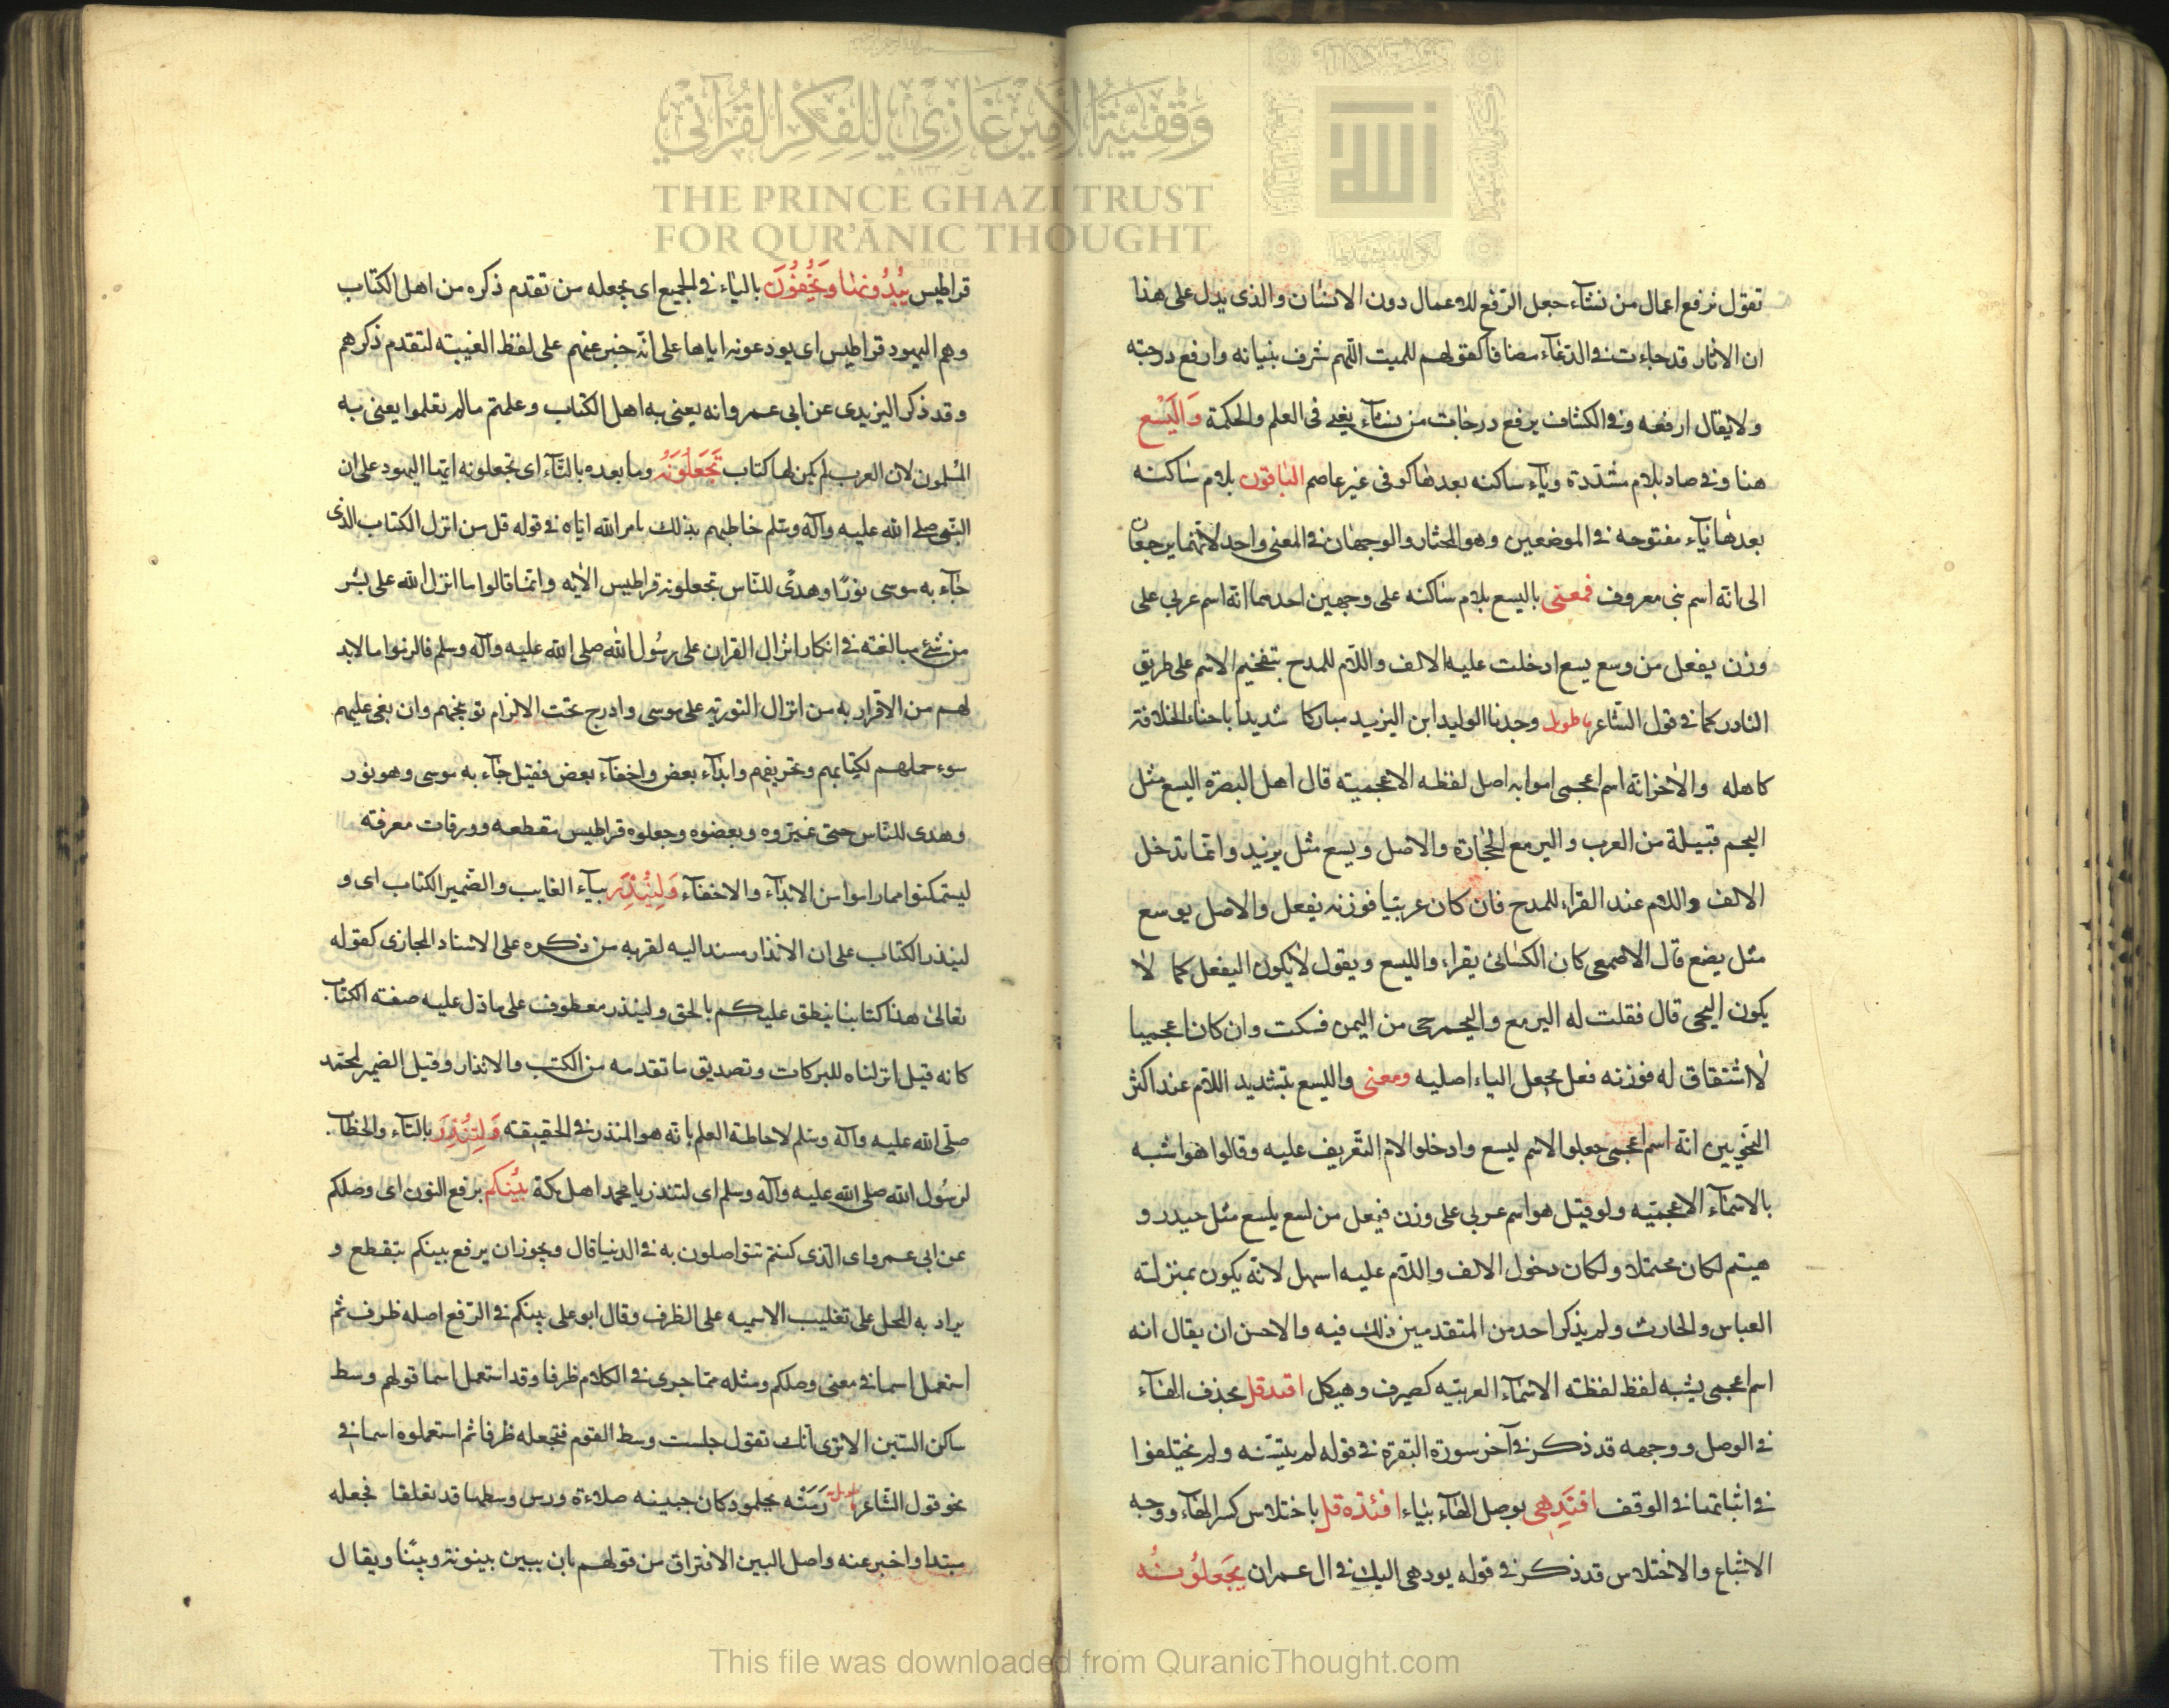 تقول نرفع اعمال من نشآء جعل الرّفع للاعمال دون الانسان والذى يدل على هذا
ان الاثار قد جاءت فى الدّعآء مضافا كقولهم للميت اللّهم شرف بنيانه وارفع درجته
ولا يقال ارفعه وفى الكشاف يرفع درجات من نشآء يعنى فى العلم والحكمة وَالْيَسَع
هنا وفى صاد بلام مشدّدة وياء ساكنه بعدها كوفى غير عاصم الباقون بلام ساكنه
بعدها ياء مفتوحه فى الموضعين وهو المختار والوجهان فى المعنى واحد لانّهما يرجعان
الى انّه اسم نبى معروف فمعنى باليسع بلام ساكنه على وجهين احدهما انّه اسم عربي على
وزن يفعل من وسع يسع ادخلت عليه الالف واللّام للمدح بتفخيم الاسم على طريق
النادر كما فى قول الشّاعر طويل وجدنا الوليد ابن اليزيد مباركا شديدا باحناء الخلافة
كاهله والاخر انّه اسم اعجمى اصل لفظه الاعجميته قال اهل البصرة اليسع مثل
اليحم قبيلة من العرب واليرمع الحجارة والاصل ويسع مثل يزيد وانما تدخل
الالف واللام عند القراء للمدح فان كان عربيا فوزنه يفعل والاصل يوسع
مثل يضع قال الاصمعى كان الكسائى يقراء والليسع ويقول لا يكون اليفعل كما لا
يكون اليحى قال فقلت له اليرمع واليحمر حى من اليمن فسكت وان كان اعجميا
لا اشتقاق له فوزنه فعل يجعل الياء اصليه ومعنى والليسع بتشديد اللام عند اكثر
النحويين انّه اسم اعجمى جعلوا الاسم ليسع وادخلوا لام التّعريف عليه وقالوا هو اشبه
بالاسمآء الاعجميّه ولو قيل هو اسم عربى على وزن فيعل من لسع يلسع مثل حيدر و
هيتم لكان محتملا ولكان دخول الالف واللّام عليه اسهل لانّه يكون بمنزلته
العباس والحارث ولم يذكر احد من المتقدمين ذلك فيه والاحسن ان يقال انه
اسم اعجمى يشبه لفظ لفظته الاسمآء العربيّه كصيرف وهيكل اقتد قل بحذف الهآء
فى الوصل ووجهه قد ذكر فى آخر سورة البقرة فى قوله لم يتسنه ولم يختلفوا
فى اثباتها فى الوقف اقتَدِهى بوصل الهآء بياء اقتده قل باختلاس كسر الهآء ووجه
الاشباع والاختلاس قد ذكر فى قوله يودهى اليك فى ال عمران يَجْعَلُوْنَهُ
قراطيس يُبْدُونَهَا وَيُخْفُوْنَ بالياء فى الجميع اى يجعله من تقدم ذكره من اهل الكتاب
وهم اليهود قراطيس اى يودعونه اياها على انّه خبر عنهم على لفظ الغيبته لتقدم ذكرهم
وقد ذكر اليزيدى عن ابى عمرو انه يعنى به اهل الكتاب وعلمتم مالم تعلموا يعنى به
المسلمون لان العرب لم يكن لها كتاب تَجْعَلُوْنَهُ وما بعده بالتّآء اى تجعلونه ايها اليهود على ان
النّبى صلى الله عليه وآله وسلم خاطبهم بذلك بامر الله ايّاه فى قوله قل من انزل الكتاب الذى
جآء به موسى نورًا وهدًى للنّاس تجعلونه قراطيس الايه وانما قالوا ما انزل الله على بشر
من شئ مبالغته فى انكار انزال القران على رسُول الله صلى الله عليه وآله وسلم فالزموا مالابد
لهم من الاقرار به من انزال التوريه على موسى وادرج تحت الالزام توبيخهم وان نعى عليهم
سوء حملهم لكتابهم وتحريفهم وابدآء بعض واخفآء بعض فقيل جآء به موسى وهو نور
وهدى للنّاس حتى غيّروه وبعضوه وجعلوه قراطيس مقطعه وورقات مفرقه
ليتمكنوا مما راموا من الابدآء والاخفآء وَلِيُنْذِرَ بيآء الغايب والضمير الكتاب اى و
لينذر الكتاب على ان الانذار مسند اليه لقربه من ذكره على الاسناد المجازى كقوله
تعالى هذا كتابنا ينطق عليكم بالحق ولينذر معطوف على ما دل عليه صفته الكتاب
كانه قيل انزلناه للبركات وتصديق ما تقدمه من الكتب والانذار وقيل الضمير لمحمّد
صلّى الله عليه وآله وسلم لاحاطة العلم بانّه هو المنذر فى الحقيقته وَلِتُنْذِرَ بالتآء والخطاب
لرسُول الله صلى الله عليه وآله وسلم اى لتنذر يا محمد اهل مكة بَيْنُكم برفع النون اى وصلكم
عن ابى عمرو اى الّذى كنتم تتواصلون به فى الدنيا قال ويجوز ان يرفع بينكم بتقطع و
يراد به المحل على تغليب الاسميه على الظرف وقال ابو على بينكم فى الرّفع اصله ظرف ثم
استعمل اسما فى معنى وصلكم ومثله ممّا جرى فى الكلام ظرفا وقد استعمل اسما قولهم وسط
ساكن السّين الا ترى انّك تقول جلست وسط القوم فتجعله ظرفا ثم استعملوه اسما فى
نحو قول الشّاعر طويل رَمَتْه بجلمود كان جبينه صلاءة ورس وسطها قد تفلقا فجعله
مبتدا واخبر عنه واصل البين الافتراق من قولهم بان يبين بينونة وبينا ويقال
وَقْفِيَّةُ الأَمِيرِ غَازِي لِلْفِكْرِ الْقُرْآنِي
THE PRINCE GHAZI TRUST
FOR QUR'ĀNIC THOUGHT
This file was downloaded from QuranicThought.com